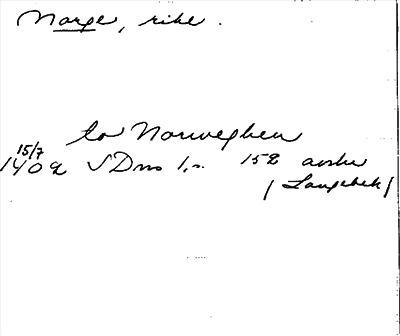 Norge, rike.
to Norweghen
15/7
1409 SDns 1, s. 152 avskr
(Langebek)